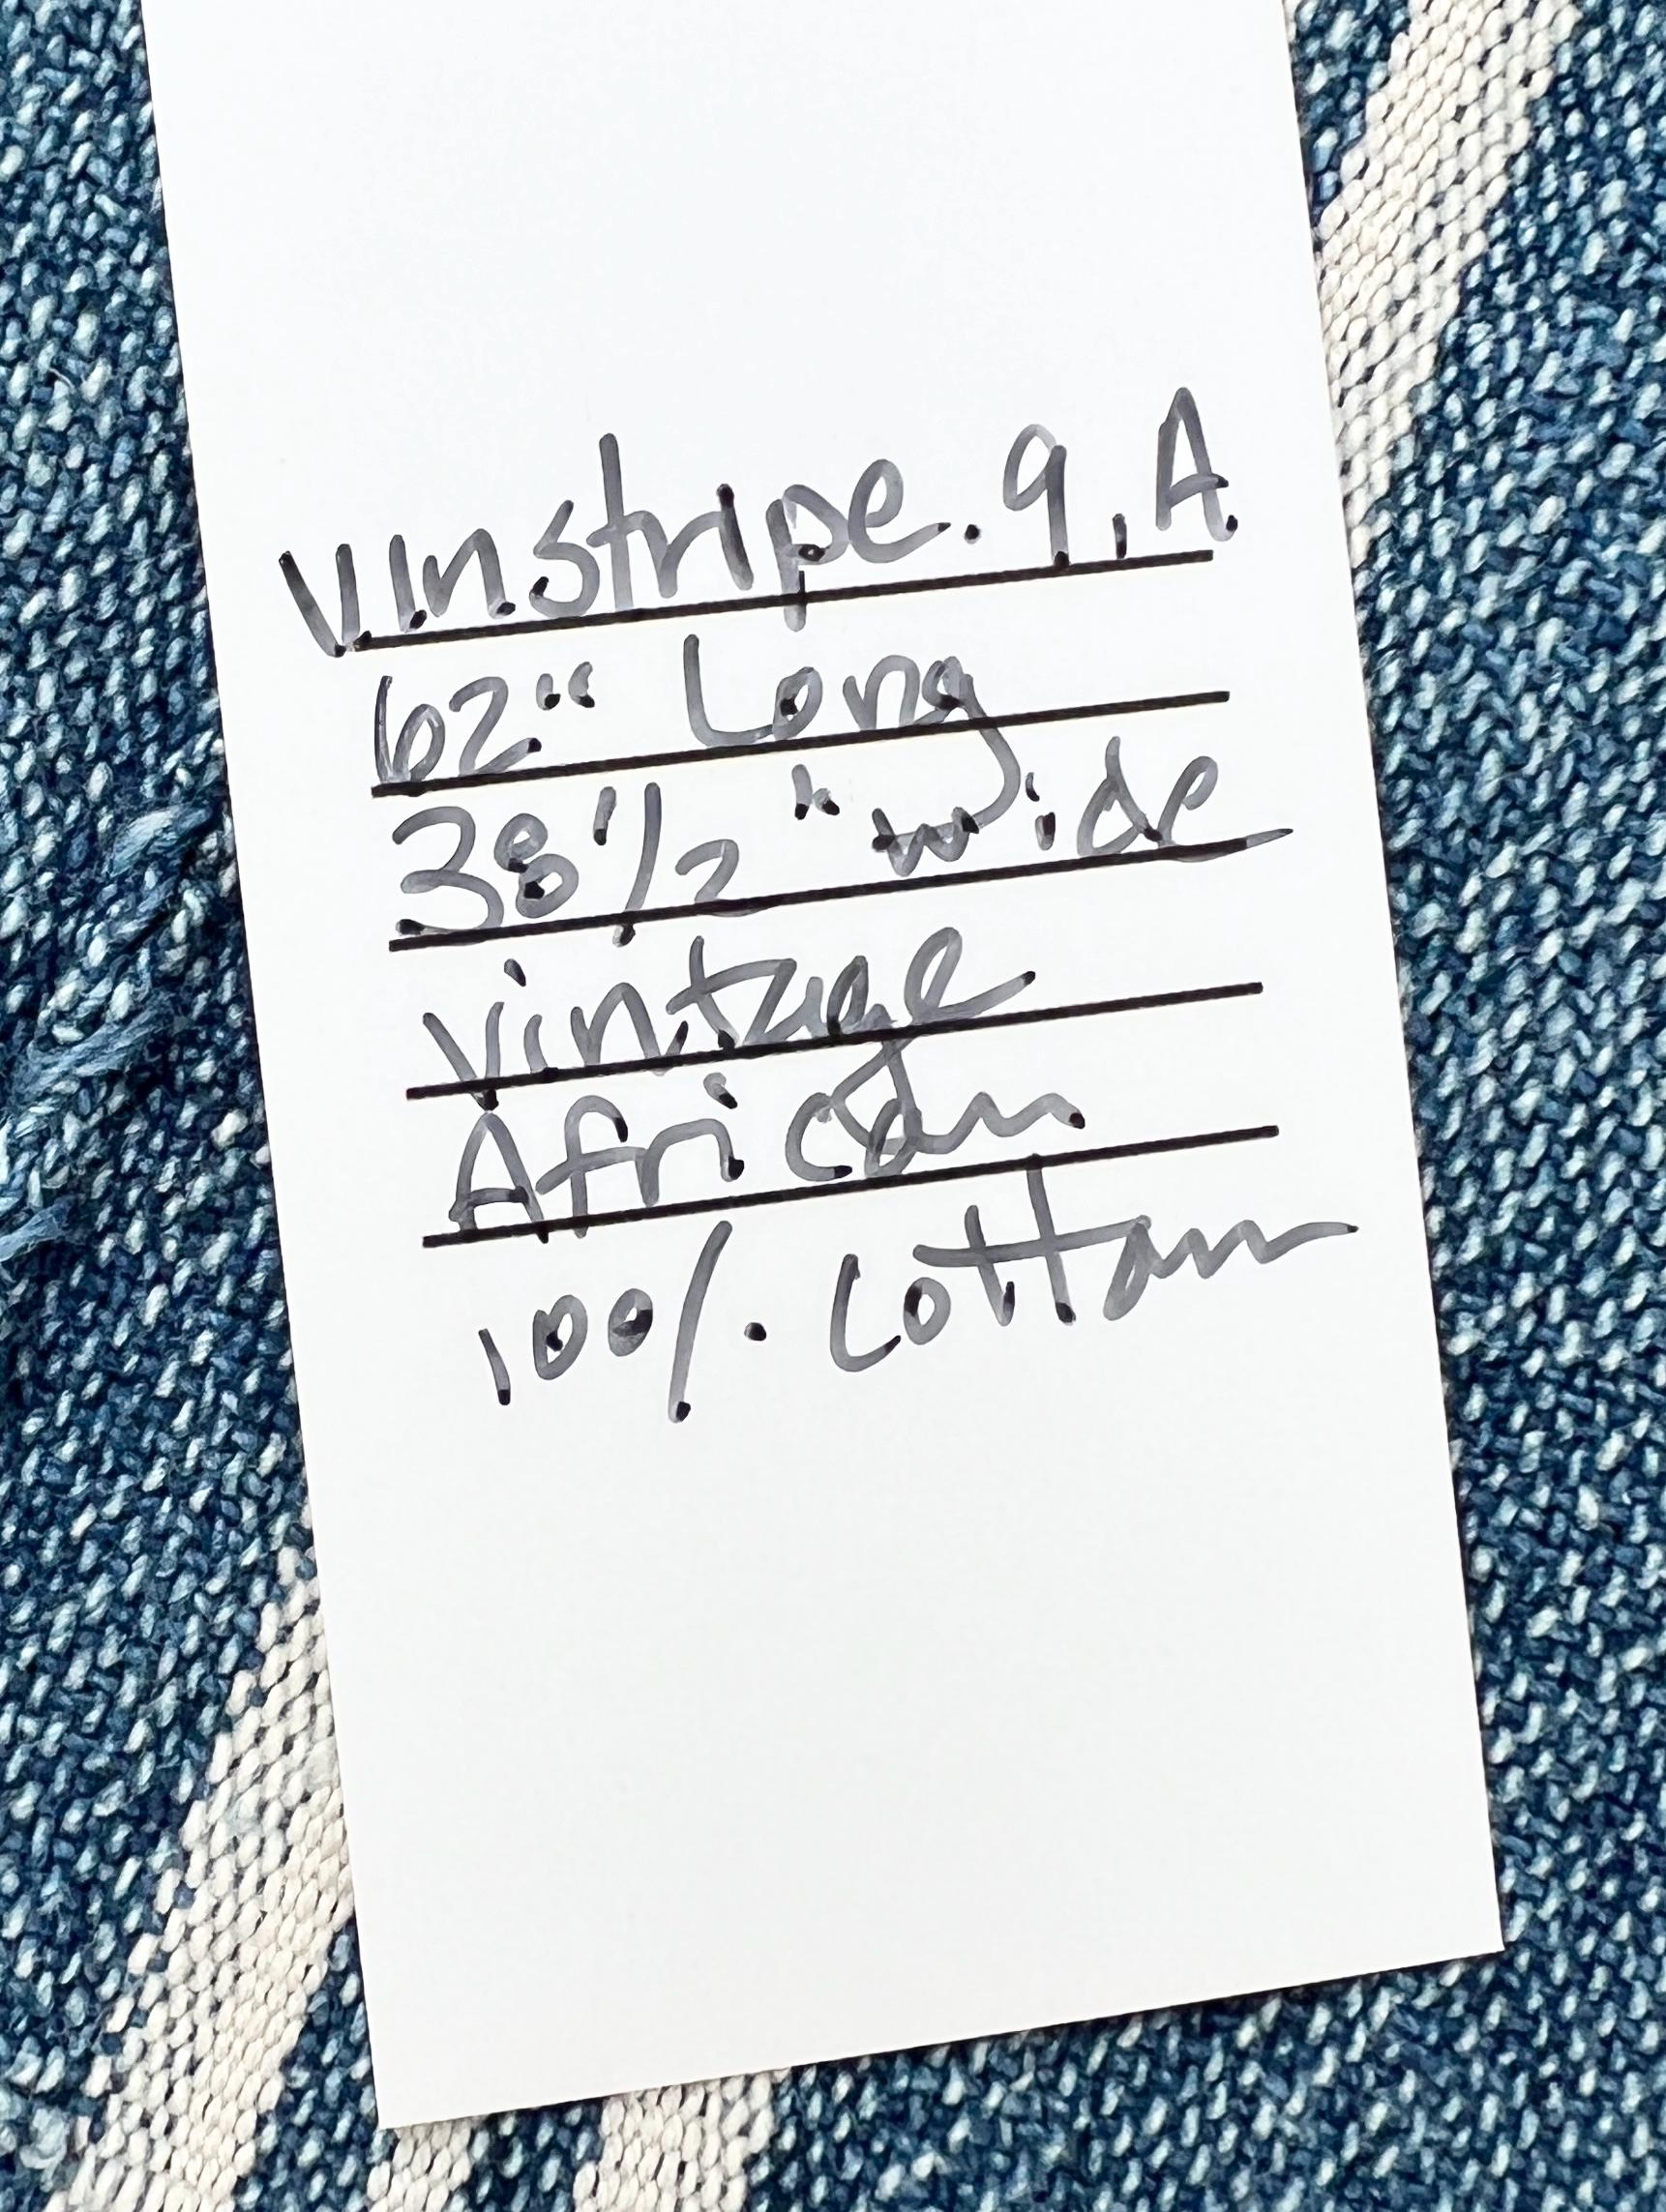 Vinstripe.9.A
62" Long
38 1/2" wide
vintage
African
100% Cotton